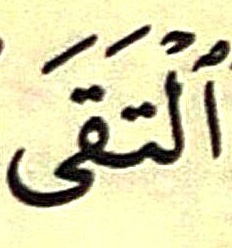 ٱلْتَقَى